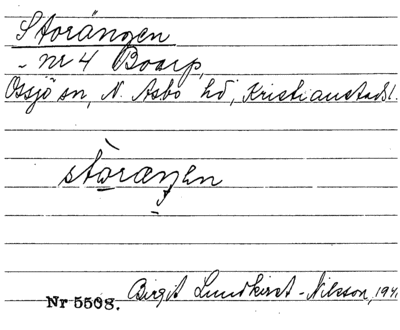 Storängen
- nr 4 Boarp,
Össjö sn, N. Åsbo hd, Kristianstads l.
storæŋen
Birgit Lundkvist-Nilsson, 194
Nr 5508.